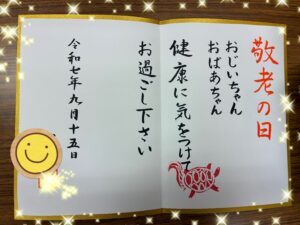 敬老の日
おじいちゃん
おばあちゃん
健康に気をつけて
お過ごし下さい
令和七年九月十五日